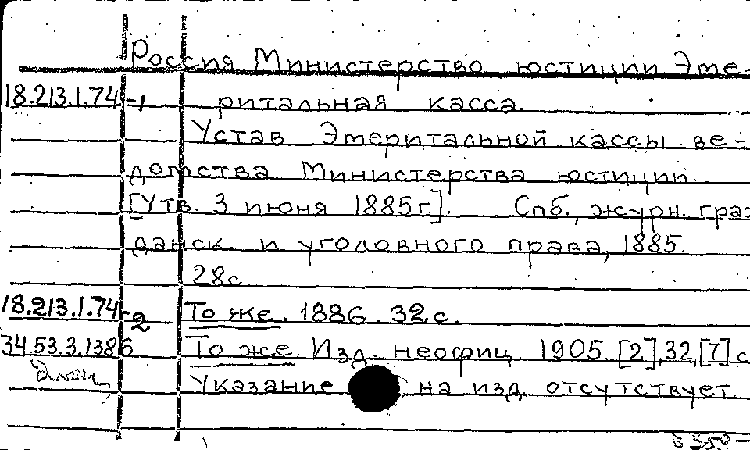 Россия Министерство юстиции Эме-
18.213.1.74-1 ритальная касса.
Устав Эмеритальной кассы ве-
домства Министерства юстиции.
[Утв. 3 июня 1885г]. Спб., журн. граж
данск. и уголовного права, 1885.
28с
18.213.1.74-2 То же. 1886. 32с.
34.53.3.1386 То же Изд. неофиц. 1905. [2],32,[7]с
Указание на изд. отсутствует.